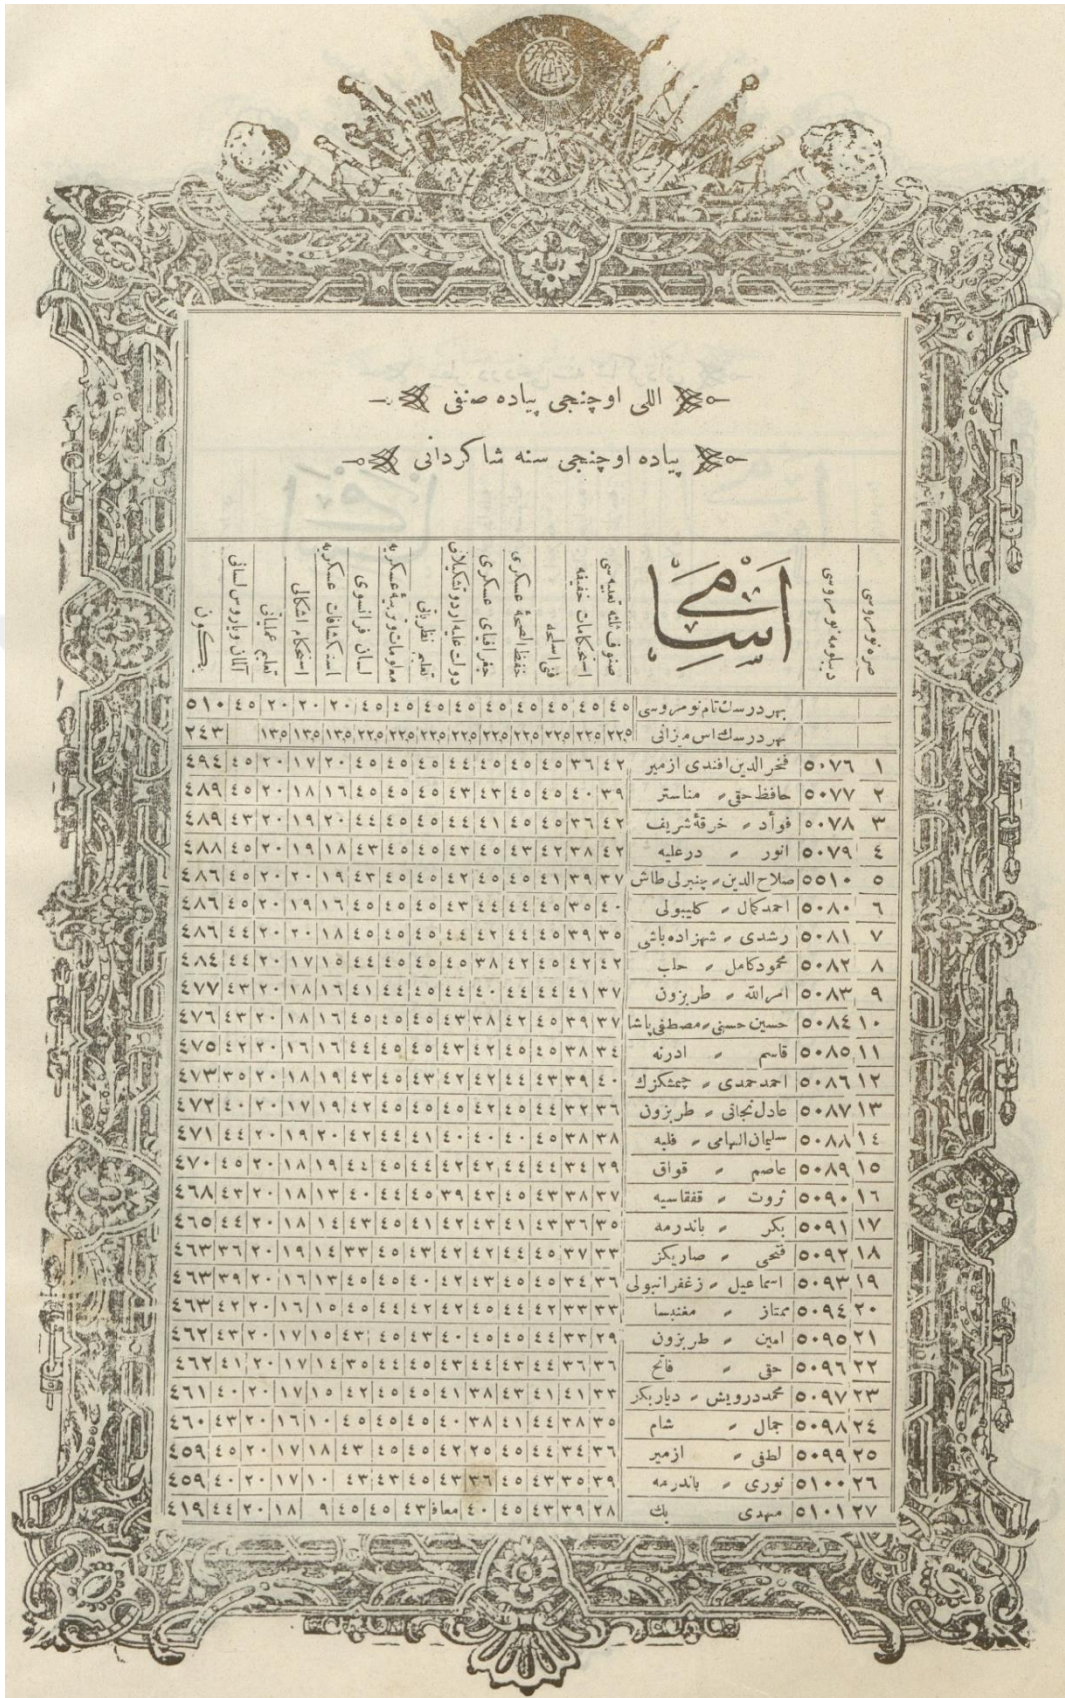 اللی اوچنجی پیاده صنفی
پیاده اوچنجی سنه شاكردانی
صره نومروسی دیپلومه نومروسی اسامی صنوف ثلثه تعبیه سی استحكامات خفیفه فن اسلحه حفظ الصحهٔ عسكری جغرافیای عسكری دولت علیه اردو تشكیلاتی تعلیم نظریاتی معلومات و تربیهٔ عسكریه لسان فرانسوی استكشافات عسكریه استحكام اشكالی تعلیم عملیاتی آلمان ویا روس لسانی یكون
بهر درسك تام نومروسی ٤٥ ٤٥ ٤٥ ٤٥ ٤٥ ٤٥ ٤٥ ٤٥ ٤٥ ٢٠ ٢٠ ٢٠ ٤٥ ٥١٠
بهر درسك اس میزانی ٢٢,٥ ٢٢,٥ ٢٢,٥ ٢٢,٥ ٢٢,٥ ٢٢,٥ ٢٢,٥ ٢٢,٥ ٢٢,٥ ١٣,٥ ١٣,٥ ١٣,٥ ٢٤٣
١ ٥٠٧٦ فخرالدین افندی ازمیر ٤٢ ٣٦ ٤٥ ٤٥ ٤٥ ٤٤ ٤٥ ٤٥ ٤٥ ٢٠ ١٧ ٢٠ ٤٥ ٤٩٤
٢ ٥٠٧٧ حافظ حقی مناستر ٣٩ ٤٠ ٤٥ ٤٥ ٤٣ ٤٣ ٤٥ ٤٥ ٤٥ ١٦ ١٨ ٢٠ ٤٥ ٤٨٩
٣ ٥٠٧٨ فوأد خرقهٔ شریف ٤٢ ٣٦ ٤٥ ٤٥ ٤١ ٤٤ ٤٥ ٤٥ ٤٤ ٢٠ ١٩ ٢٠ ٤٣ ٤٨٩
٤ ٥٠٧٩ انور درعلیه ٤٢ ٣٨ ٤٢ ٤٣ ٤٥ ٤٣ ٤٥ ٤٥ ٤٣ ١٨ ١٩ ٢٠ ٤٥ ٤٨٨
٥ ٥٥١٠ صلاح الدین چنبرلی طاش ٣٧ ٣٩ ٤١ ٤٥ ٤٥ ٤٢ ٤٥ ٤٥ ٤٣ ١٩ ٢٠ ٢٠ ٤٥ ٤٨٦
٦ ٥٠٨٠ احمد كمال كلیبولی ٤٠ ٣٥ ٤٥ ٤٤ ٤٤ ٤٣ ٤٥ ٤٥ ٤٥ ١٦ ١٩ ٢٠ ٤٥ ٤٨٦
٧ ٥٠٨١ رشدی شهزاده باشی ٣٥ ٣٩ ٤٥ ٤٤ ٤٢ ٤٤ ٤٥ ٤٥ ٤٥ ١٨ ٢٠ ٢٠ ٤٤ ٤٨٦
٨ ٥٠٨٢ محمود كامل حلب ٤٢ ٤٢ ٤٥ ٤٢ ٣٨ ٤٥ ٤٥ ٤٥ ٤٤ ١٥ ١٧ ٢٠ ٤٤ ٤٨٤
٩ ٥٠٨٣ امرالله طربزون ٣٧ ٤١ ٤٤ ٤٤ ٤٠ ٤٤ ٤٥ ٤٤ ٤١ ١٦ ١٨ ٢٠ ٤٣ ٤٧٧
١٠ ٥٠٨٤ حسین حسنی مصطفی پاشا ٣٧ ٣٩ ٤٥ ٤٢ ٣٨ ٤٣ ٤٥ ٤٥ ٤٥ ١٦ ١٨ ٢٠ ٤٣ ٤٧٦
١١ ٥٠٨٥ قاسم ادرنه ٣٤ ٣٨ ٤٥ ٤٥ ٤٢ ٤٣ ٤٥ ٤٥ ٤٤ ١٦ ١٦ ٢٠ ٤٢ ٤٧٥
١٢ ٥٠٨٦ احمد حمدی چمشكزك ٤٠ ٣٩ ٤٣ ٤٤ ٤٢ ٤٢ ٤٣ ٤٥ ٤٣ ١٩ ١٨ ٢٠ ٣٥ ٤٧٣
١٣ ٥٠٨٧ عادل نجاتی طربزون ٣٦ ٣٢ ٤٤ ٤٥ ٤٢ ٤٥ ٤٥ ٤٥ ٤٢ ١٩ ١٧ ٢٠ ٤٠ ٤٧٢
١٤ ٥٠٨٨ سلیمان الهامی فلبه ٣٨ ٣٨ ٤٥ ٤٠ ٤٠ ٤٠ ٤١ ٤٤ ٤٢ ٢٠ ١٩ ٢٠ ٤٤ ٤٧١
١٥ ٥٠٨٩ عاصم قواق ٢٩ ٣٤ ٤٤ ٤٤ ٤٢ ٤٢ ٤٤ ٤٥ ٤٤ ١٩ ١٨ ٢٠ ٤٥ ٤٧٠
١٦ ٥٠٩٠ ثروت قفقاسیه ٣٧ ٣٨ ٤٣ ٤٥ ٤٣ ٣٩ ٤٥ ٤٤ ٤٠ ١٣ ١٨ ٢٠ ٤٣ ٤٦٨
١٧ ٥٠٩١ بكر باندرمه ٣٥ ٣٦ ٤٣ ٤١ ٤٣ ٤٢ ٤١ ٤٥ ٤٣ ١٤ ١٨ ٢٠ ٤٤ ٤٦٥
١٨ ٥٠٩٢ فتحی صاریكز ٣٣ ٣٧ ٤٥ ٤٤ ٤٢ ٤٢ ٤٣ ٤٥ ٣٣ ١٤ ١٩ ٢٠ ٣٦ ٤٦٣
١٩ ٥٠٩٣ اسماعیل زغفرانبولی ٣٦ ٣٤ ٤٥ ٤٥ ٤٣ ٤٢ ٤٠ ٤٥ ٤٥ ١٣ ١٦ ٢٠ ٣٩ ٤٦٣
٢٠ ٥٠٩٤ ممتاز مغنیسا ٣٣ ٣٣ ٤٢ ٤٤ ٤٥ ٤٢ ٤٢ ٤٤ ٤٥ ١٥ ١٦ ٢٠ ٤٢ ٤٦٣
٢١ ٥٠٩٥ امین طربزون ٢٩ ٣٣ ٤٤ ٤٥ ٤٥ ٤٠ ٤٣ ٤٥ ٤٣ ١٥ ١٧ ٢٠ ٤٣ ٤٦٢
٢٢ ٥٠٩٦ حقی فاتح ٣٦ ٣٦ ٤٤ ٤٣ ٤٤ ٤٣ ٤٥ ٤٤ ٣٥ ١٤ ١٧ ٢٠ ٤١ ٤٦٢
٢٣ ٥٠٩٧ محمد درویش دیاربكر ٣٣ ٤١ ٤١ ٤٣ ٣٨ ٤١ ٤٥ ٤٥ ٤٢ ١٥ ١٧ ٢٠ ٤٠ ٤٦١
٢٤ ٥٠٩٨ جمال شام ٣٥ ٣٨ ٤٤ ٤١ ٣٨ ٤٠ ٤٥ ٤٥ ٤٥ ١٠ ١٦ ٢٠ ٤٣ ٤٦٠
٢٥ ٥٠٩٩ لطفی ازمیر ٣٦ ٣٤ ٤٤ ٤٥ ٢٥ ٤٢ ٤٥ ٤٥ ٤٣ ١٨ ١٧ ٢٠ ٤٥ ٤٥٩
٢٦ ٥١٠٠ نوری باندرمه ٣٩ ٣٥ ٤٣ ٤٥ ٣٦ ٤٣ ٤٥ ٤٣ ٤٣ ١٠ ١٧ ٢٠ ٤٠ ٤٥٩
٢٧ ٥١٠١ مهدی بك ٢٨ ٣٩ ٤٣ ٤٥ ٤٠ معاف ٤٣ ٤٥ ٤٥ ٩ ١٨ ٢٠ ٤٤ ٤١٩